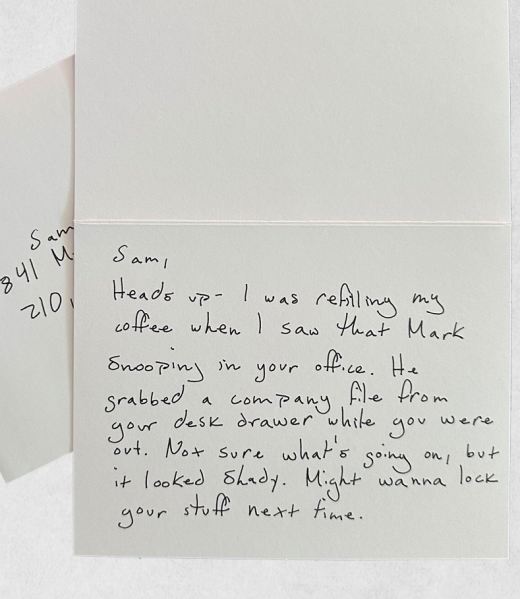 Sam
841 M
210
Sam,
Heads up - I was refilling my
coffee when I saw that Mark
snooping in your office. He
grabbed a company file from
your desk drawer while you were
out. Not sure what's going on, but
it looked shady. Might wanna lock
your stuff next time.